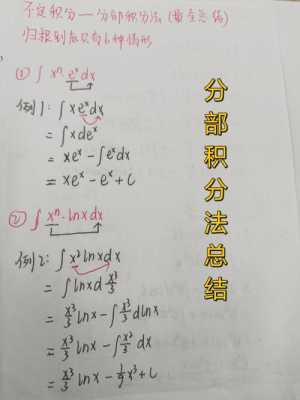 不定积分—分部积分法(最全总结)
归根到底只有6种情形
① ∫ xⁿ·eˣdx
例1: ∫ xeˣdx
= ∫ xdeˣ
= xeˣ - ∫ eˣdx
= xeˣ - eˣ + C
② ∫ xⁿ·lnxdx
例2: ∫ x²lnxdx
= ∫ lnxd x³/3
= x³/3 lnx - ∫ x³/3 dlnx
= x³/3 lnx - ∫ x²/3 dx
= x³/3 lnx - 1/9 x³ + C
分部积分法总结